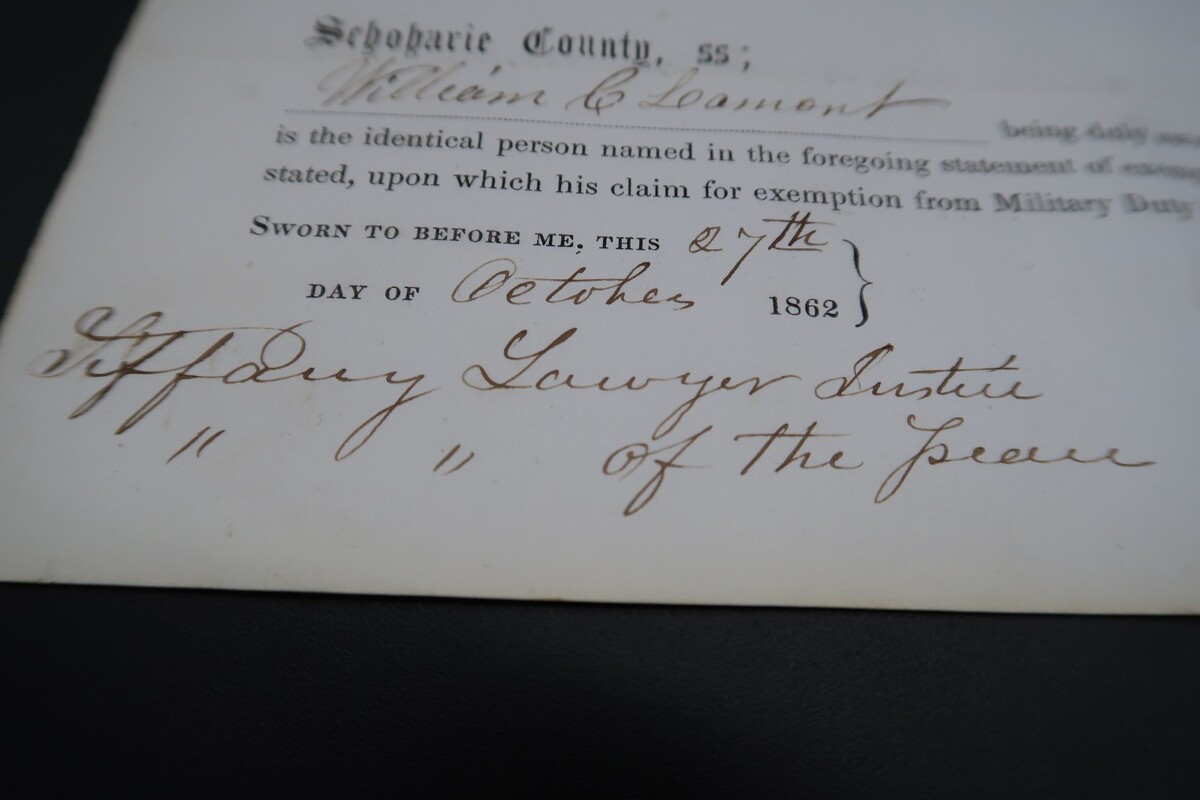 Schoharie County, ss;
William C Lamont being duly
is the identical person named in the foregoing statement of
stated, upon which his claim for exemption from Military Duty
SWORN TO BEFORE ME, THIS 27th
DAY OF October 1862
Tiffany Lawyer Justice
" " of the Peace